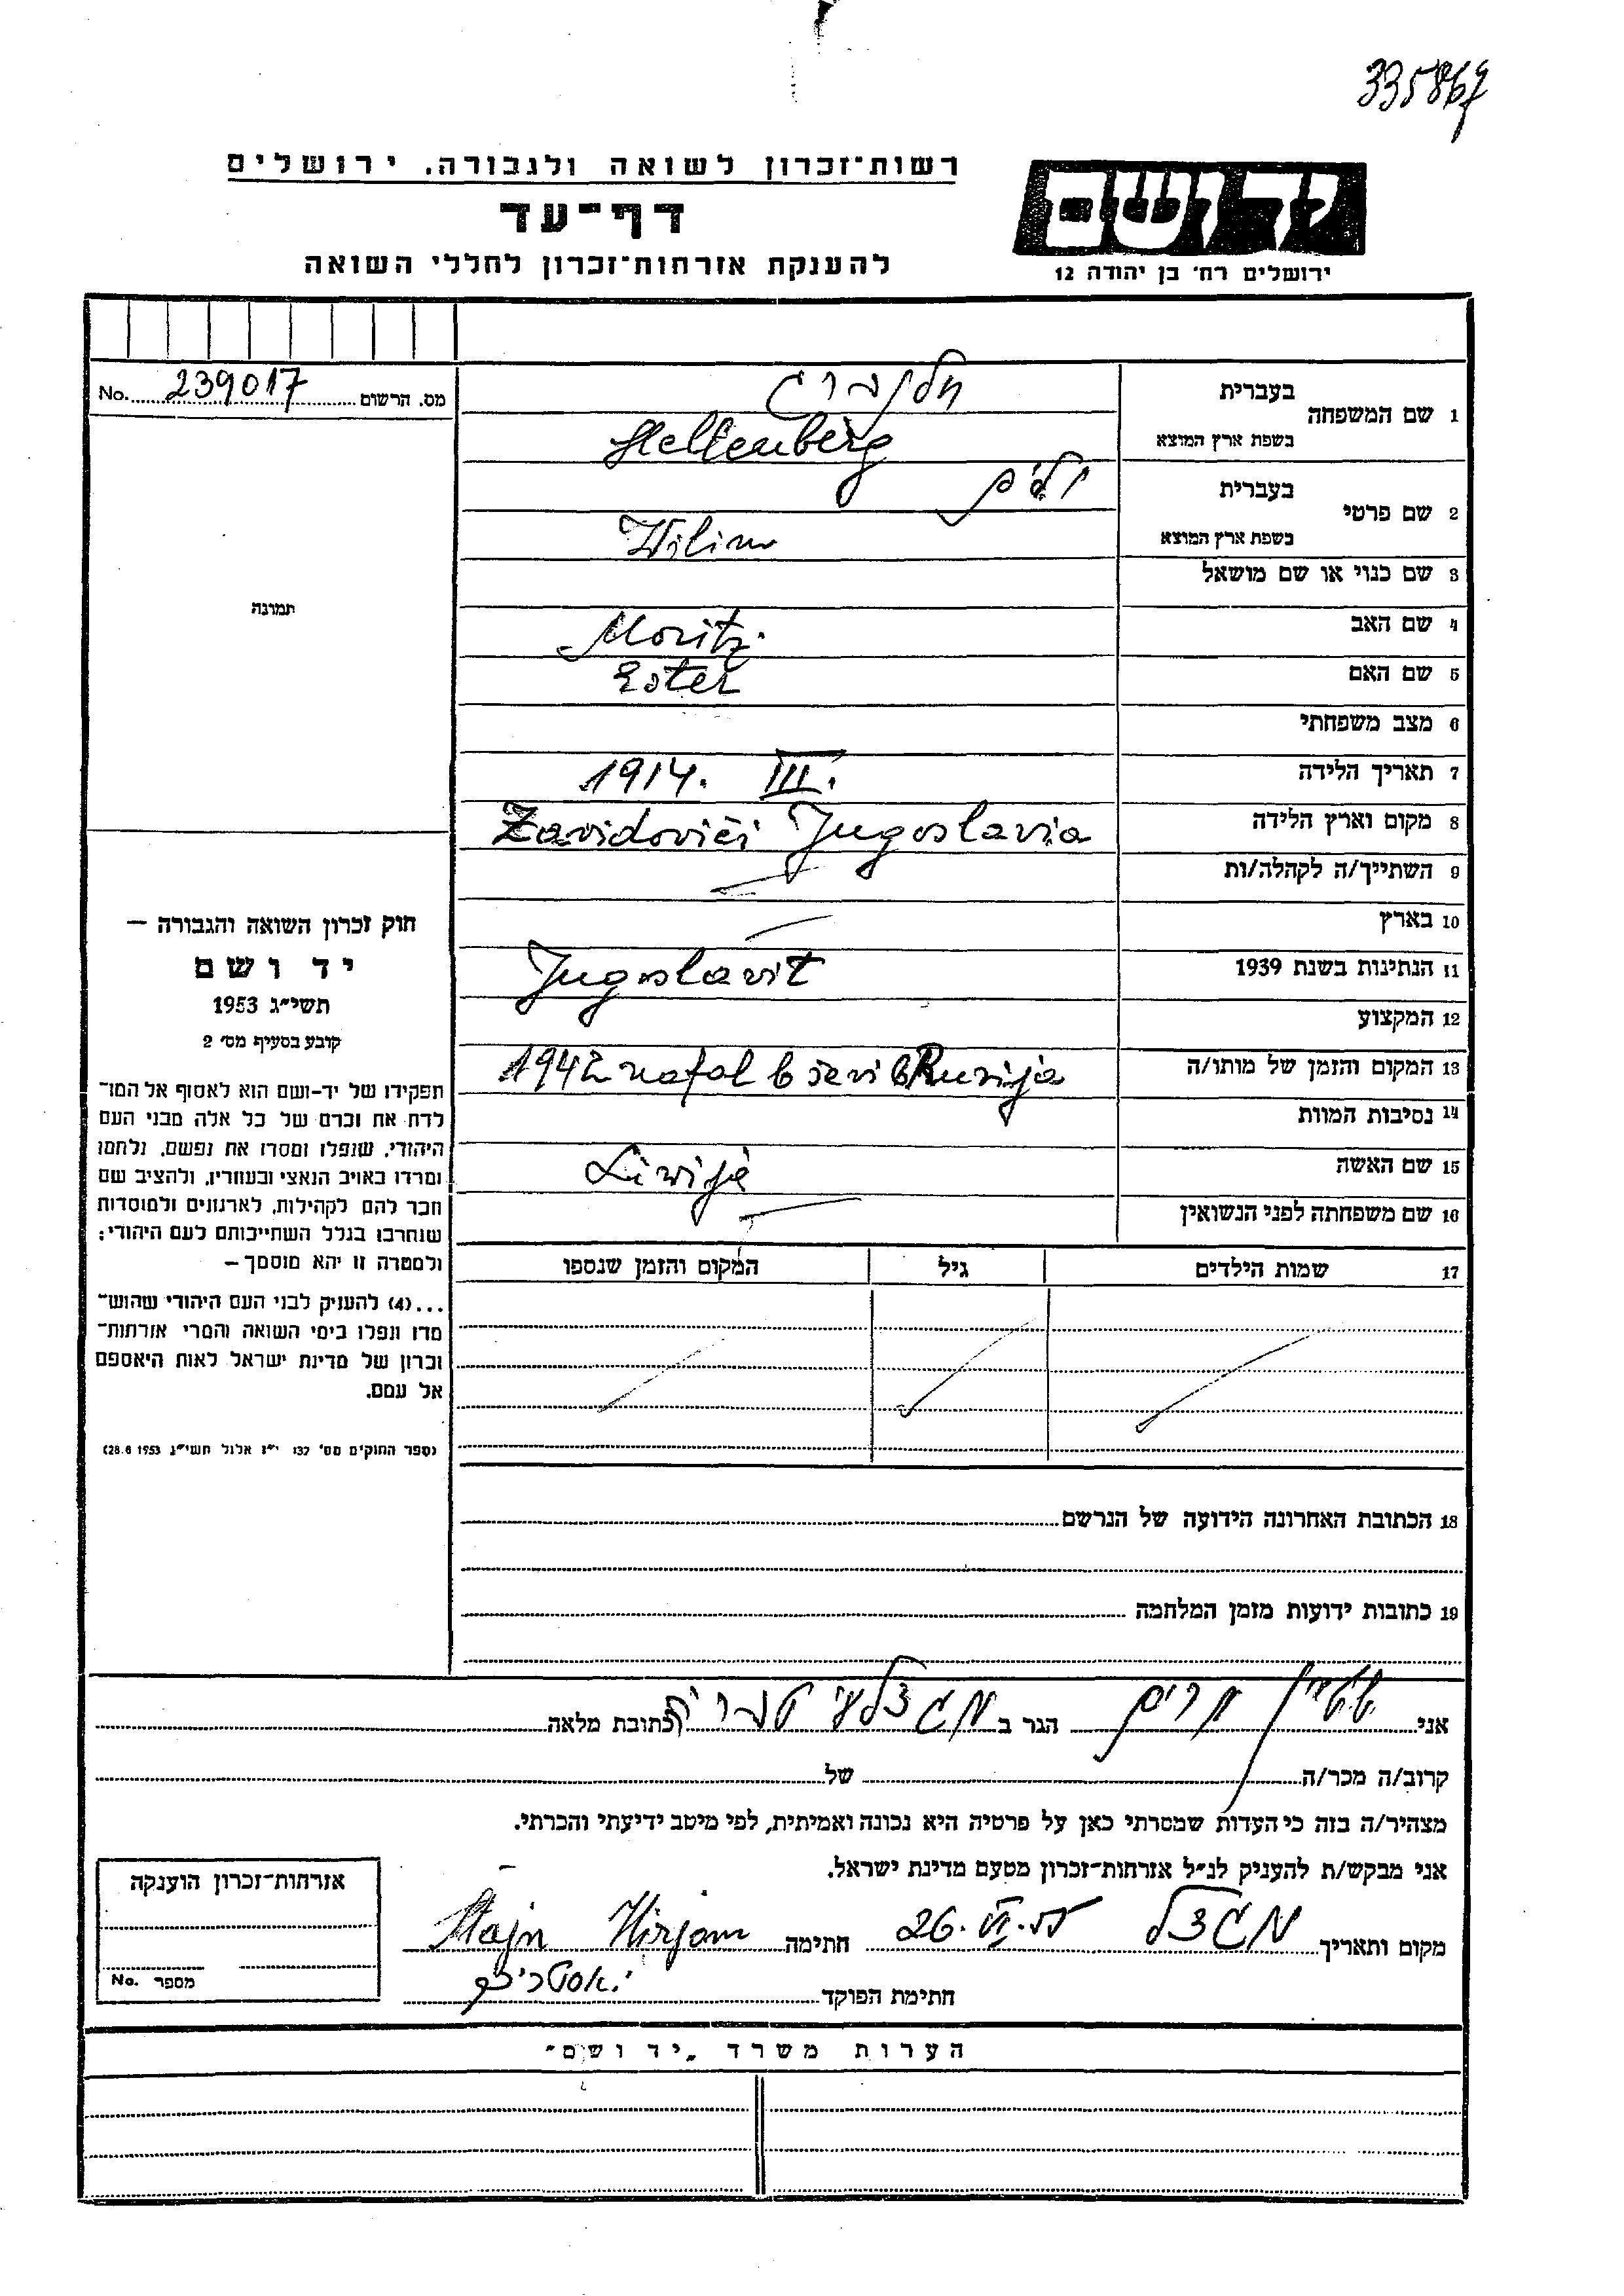 335867
רשות־זכרון לשואה ולגבורה, ירושלים
דף־עד
להענקת אזרחות־זכרון לחללי השואה
יד ושם
ירושלים רח' בן יהודה 12
מס. הרשום 239017 No.
תמונה
1 שם המשפחה
בעברית
בשפת ארץ המוצא Hellenberg
2 שם פרטי
בעברית וילים
בשפת ארץ המוצא Wilim
3 שם כנוי או שם מושאל
4 שם האב Moritz
5 שם האם Ester
6 מצב משפחתי
7 תאריך הלידה 1914. III.
8 מקום וארץ הלידה Zavidovići Jugoslavia
9 השתייך/ה לקהלה/ות
10 בארץ
11 הנתינות בשנת 1939 Jugoslavit
12 המקצוע
13 המקום והזמן של מותו/ה 1942 nafal b ševi b Rusija
14 נסיבות המוות
15 שם האשה Liwija
16 שם משפחתה לפני הנשואין
17 שמות הילדים גיל המקום והזמן שנספו
חוק זכרון השואה והגבורה –
יד ושם
תשי״ג 1953
קובע בסעיף מס׳ 2
תפקידו של יד-ושם הוא לאסוף אל המו־
לדת את זכרם של כל אלה מבני העם
היהודי, שנפלו ומסרו את נפשם, נלחמו
ומרדו באויב הנאצי ובעוזריו, ולהציב שם
וזכר להם לקהילות, לארגונים ולמוסדות
שנחרבו בגלל השתייכותם לעם היהודי;
ולמטרה זו יהא מוסמך –
...(4) להעניק לבני העם היהודי שהוש־
מדו ונפלו בימי השואה והמרי אזרחות־
זכרון של מדינת ישראל לאות היאספם
אל עמם.
(ספר החוקים מס׳ 132 י״ז אלול תשי״ג 28.8.1953)
18 הכתובת האחרונה הידועה של הנרשם
19 כתובות ידועות מזמן המלחמה
אני שטיין מרים הגר ב מגדל ע״י טבריה כתובת מלאה
קרוב/ה מכר/ה של
מצהיר/ה בזה כי העדות שמסרתי כאן על פרטיה היא נכונה ואמיתית, לפי מיטב ידיעתי והכרתי.
אני מבקש/ת להעניק לנ״ל אזרחות־זכרון מטעם מדינת ישראל.
מקום ותאריך מגדל 26.VI.55 חתימה Štajn Mirjam
חתימת הפוקד
אזרחות־זכרון הוענקה
מספר No.
הערות משרד „יד ושם״